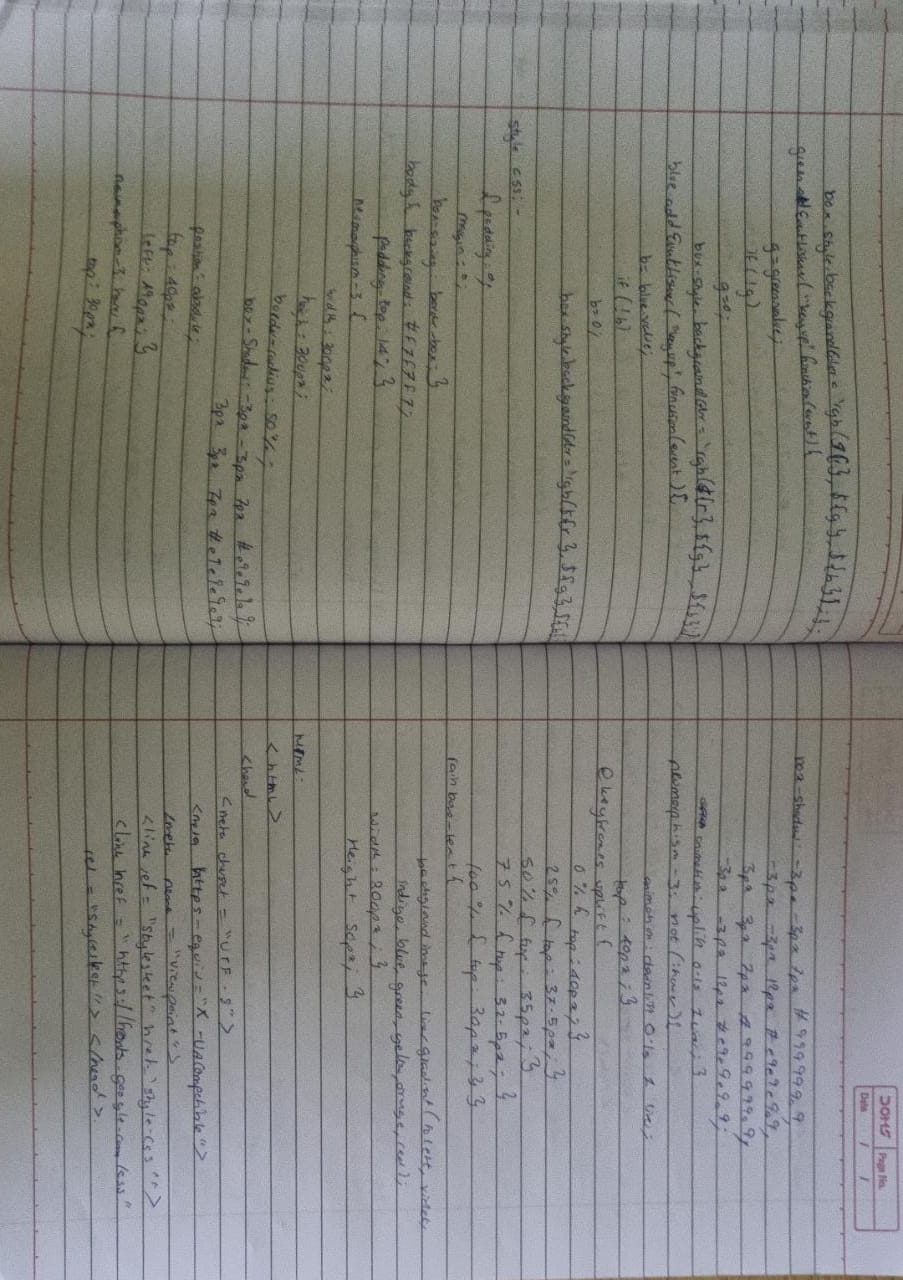 box style.backgroundColor = `rgb(${r}, ${g}, ${b}); };
green addEventListener("keyup", function(event) {
g = green value;
if (!g)
g=0;
box.style.backgroundColor = "rgb(${r}, ${g}, ${b})
blue.addEventListener("keyup", function(event) {
b = blue.value;
if (!b)
b=0;
box style.backgroundColor = "rgb(${r}, ${g}, ${b}
style css:-
{ padding: 0;
margin: 0;
box-sizing: border-box; }
body { background: #F7F7F7;
padding top: 14; }
neumorphism-3 {
width: 300px;
heigh: 300px;
border-radius: 50%;
box-Shadow: -3px -3px 7px #e9e9e9;
3px 3px 7px #e9e9e9;
position: absolute;
top: 40px;
left: 490px; }
neumorphism-3 hover {
top: 30px;
JOMS
Page No.
Date / /
box-shadow: -3px -3px 7px #999999,
-3px -3px 12px #e9e9e9,
3px 3px 7px #999999,
-3px -3px 12px #e9e9e9;
animation: uplift 0.1s 1 }
neumorphism-3: not (:hover) {
animation: downlift 0.1s 1
top: 40px; }
@keyframes uplift {
0% { top: 40px; }
25% { top: 37.5px; }
50% { top: 35px; }
75% { top: 32.5px; }
100% { top: 30px; } }
rainbow-text {
background image: linear gradient( violet,
indigo, blue, green, yellow, orange, red);
width: 300px; }
Height 50px; }
HTML:
<html>
<head
<meta charset = "UTF-8">
<meta https-equiv = "X-UAcompatible">
<meta name = "viewpoint">
<link ref = "stylesheet" href "style.css">
<link href = "https://fonts.google.com/css"
rel = "stylesheet"> </head>.